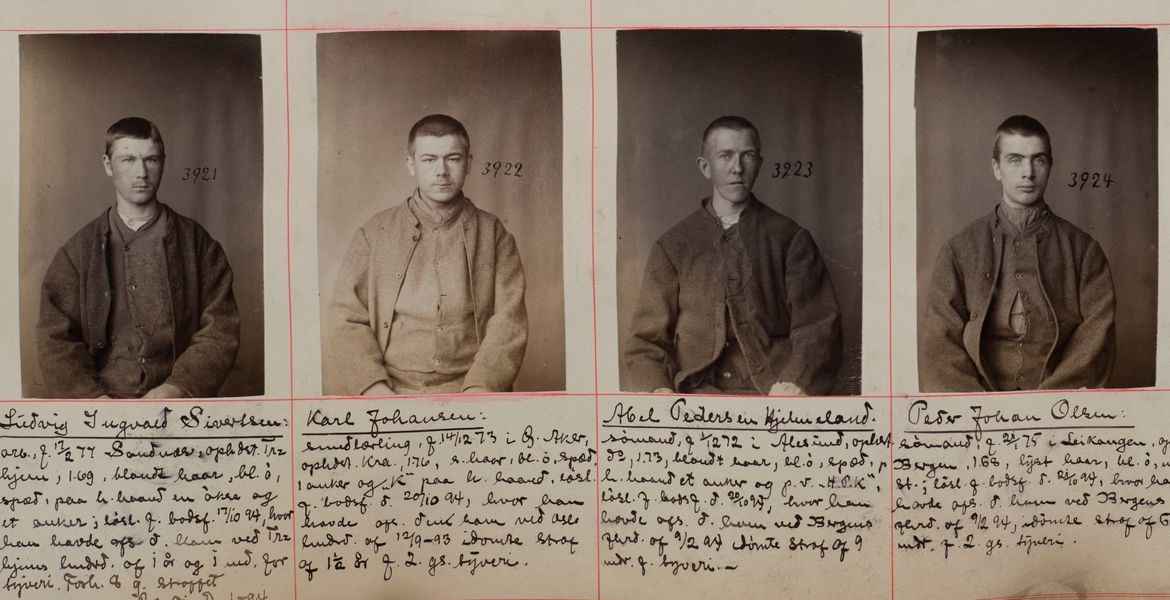 3921
3922
3923
3924
Ludvig Ingvald Sivertsen:
arb., f. 17/2 77 Sandnæs, opholdst. Tr:
hjem, 1.69, blondt haar, bl. ö,
spæd, paa h. haand en
et anker; løsl. f. bodsf. 17/10 94, hvor
han havde afs. d. ham ved Tr:
hjems lndrd. af 1 år og 1 md. for
tyveri. Forh. 8 g. straffet
Karl Johansen:
smedlærling, f. 14/12 73 i Ø. Aker,
opholdst. Kra., 1.76, s. haar, bl. ö, spæd,
1 anker og "K" paa h. haand, løsl.
f. bodsf. d. 20/10 94, hvor han
havde afs. den ham ved Oslo
lndrd. af 12/9-93 idömte straf
af 1½ år f. 2. gs. tyveri.
Abel Pedersen Hjelmeland.
sömand, f. 72 i Alesund, opholdst.
do, 1.73, blondt haar, bl. ö, spæd, p
h. haand et anker og p. v. "H.P.K",
løsl. f. bodsf. d. 20/10 94, hvor han
havde afs. d. ham ved Bergens
af 9/2 94 idömte straf af 9
mdr. f. tyveri.
Peder Johan Olsen:
sömand, f. 75 i Leikangen, op
Bergen, 1.68, lyst haar, bl. ö,
st.; løsl. f. bodsf. d. 94, hvor ha
havde afs. d. ham ved Bergens
af 9/2 94, idömte straf af 6
mdr. f. 2. gs. tyveri.